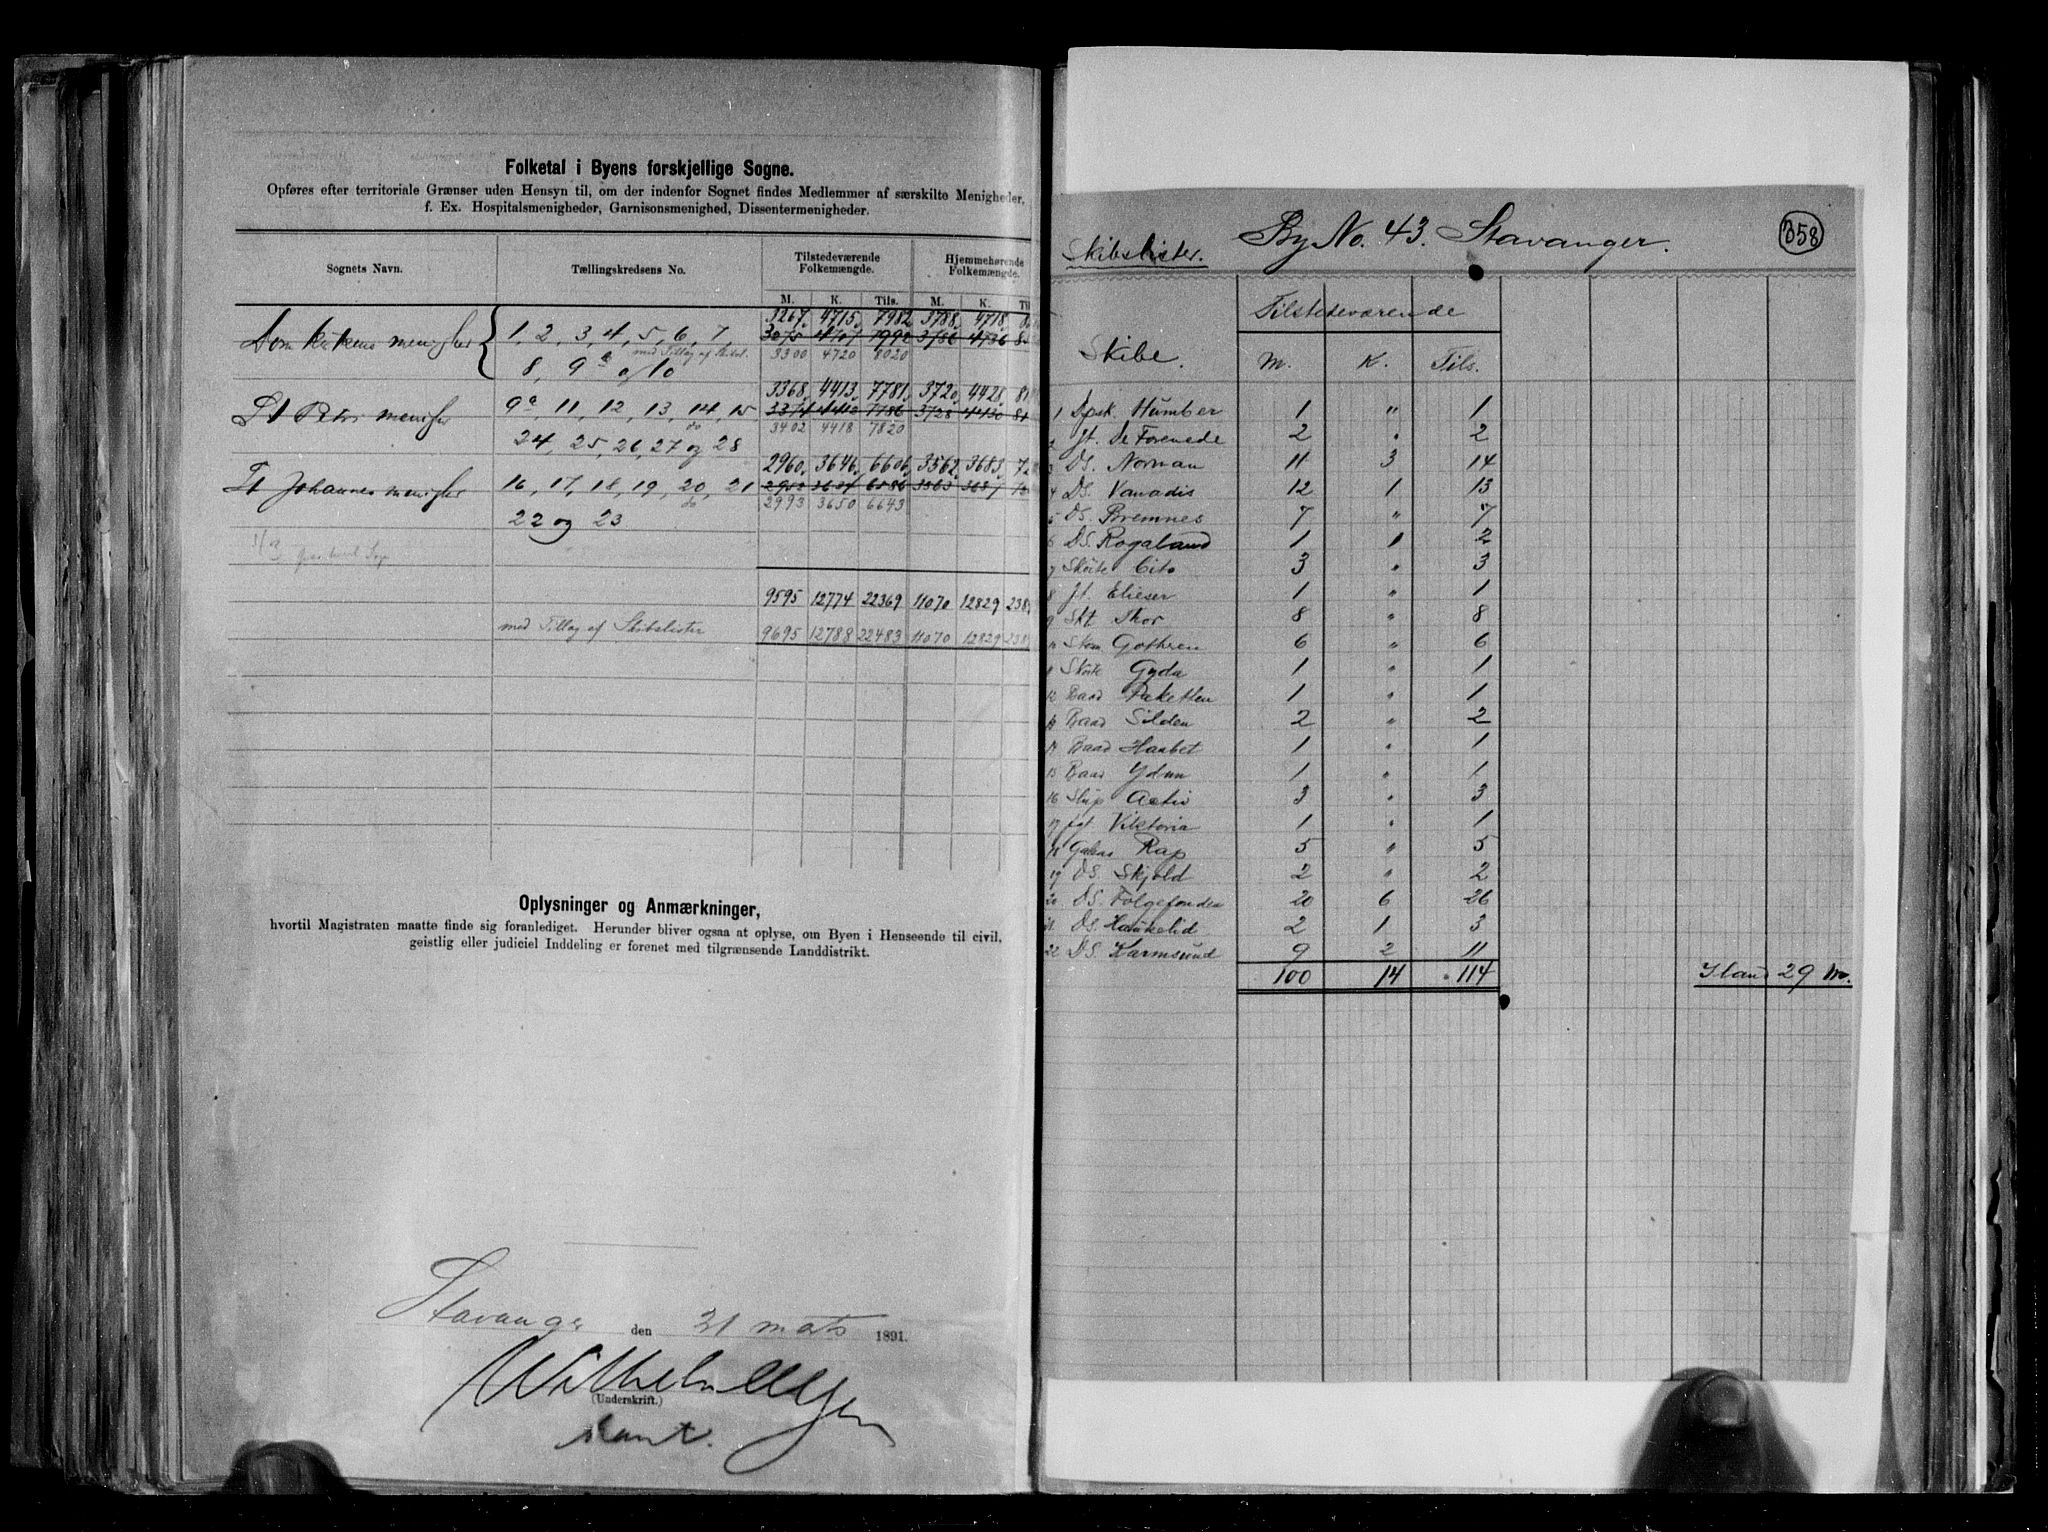 Folketal i Byens forskjellige Sogne.
Opføres efter territoriale Grænser uden Hensyn til, om der indenfor Sognet findes Medlemmer af særskilte Menigheder,
f. Ex. Hospitalsmenigheder, Garnisonsmenighed, Dissentermenigheder.
Sognets Navn. Tællingskredsens No. Tilstedeværende Folkemængde. Hjemmehørende Folkemængde.
M. K. Tils. M. K.
3267. 4715. 7982. 3788. 4718.
Domkirkens menighed 1, 2, 3, 4, 5, 6, 7, 4707 7992 3786 4736
med Tillæg af 3300 4720 8020
8, 9 b og 10
3368. 4413. 7781. 3720. 4428.
St Petri menighed 9a, 11, 12, 13, 14, 15, 3374 4412 7786 3728 4430
do 3402 4418 7820
24, 25, 26, 27 og 28
2960. 3646. 6606. 3562. 3683.
St Johannes menighed 16, 17, 18, 19, 20, 21 3563
do 2993 3650 6643
22 og 23
9595 12774 22369 11070 12829
med Tillæg af Skibslister 9695 12788 22483 11070 12829
Oplysninger og Anmærkninger,
hvortil Magistraten maatte finde sig foranlediget. Herunder bliver ogsaa at oplyse, om Byen i Henseende til civil,
geistlig eller judiciel Inddeling er forenet med tilgrænsende Landdistrikt.
Stavanger den 31 mats 1891.
(Underskrift.)
Skibslister. By No. 43. Stavanger. 358
Tilstedeværende
Skibe. M. K. Tils.
1 Dpsk. Humber 1 " 1
2 Jt. De Forenede 2 " 2
3 DS. Norman 11 3 14
4 DS. Vanadis 12 1 13
5 DS. Bremnes 7 " 7
6 DS. Rogaland 1 1 2
7 Skøite Cito 3 " 3
8 Jt. Elieser 1 " 1
9 Skt. Thor 8 " 8
Gothren 6 " 6
11 Skøite Gyda 1 " 1
12 Baad Paketten 1 " 1
13 Baad Silden 2 " 2
14 Baad Haabet 1 " 1
15 Baad Ydun 1 " 1
16 Slup Activ 3 " 3
17 Jgt Viktoria 1 " 1
18 Galeas Rap 5 " 5
19 DS. Skjold 2 " 2
20 DS. Folgefonden 20 6 26
21 DS. Haukelid 2 1 3
22 DS. Karmsund 9 2 11
100 14 114 Iland 29 m.